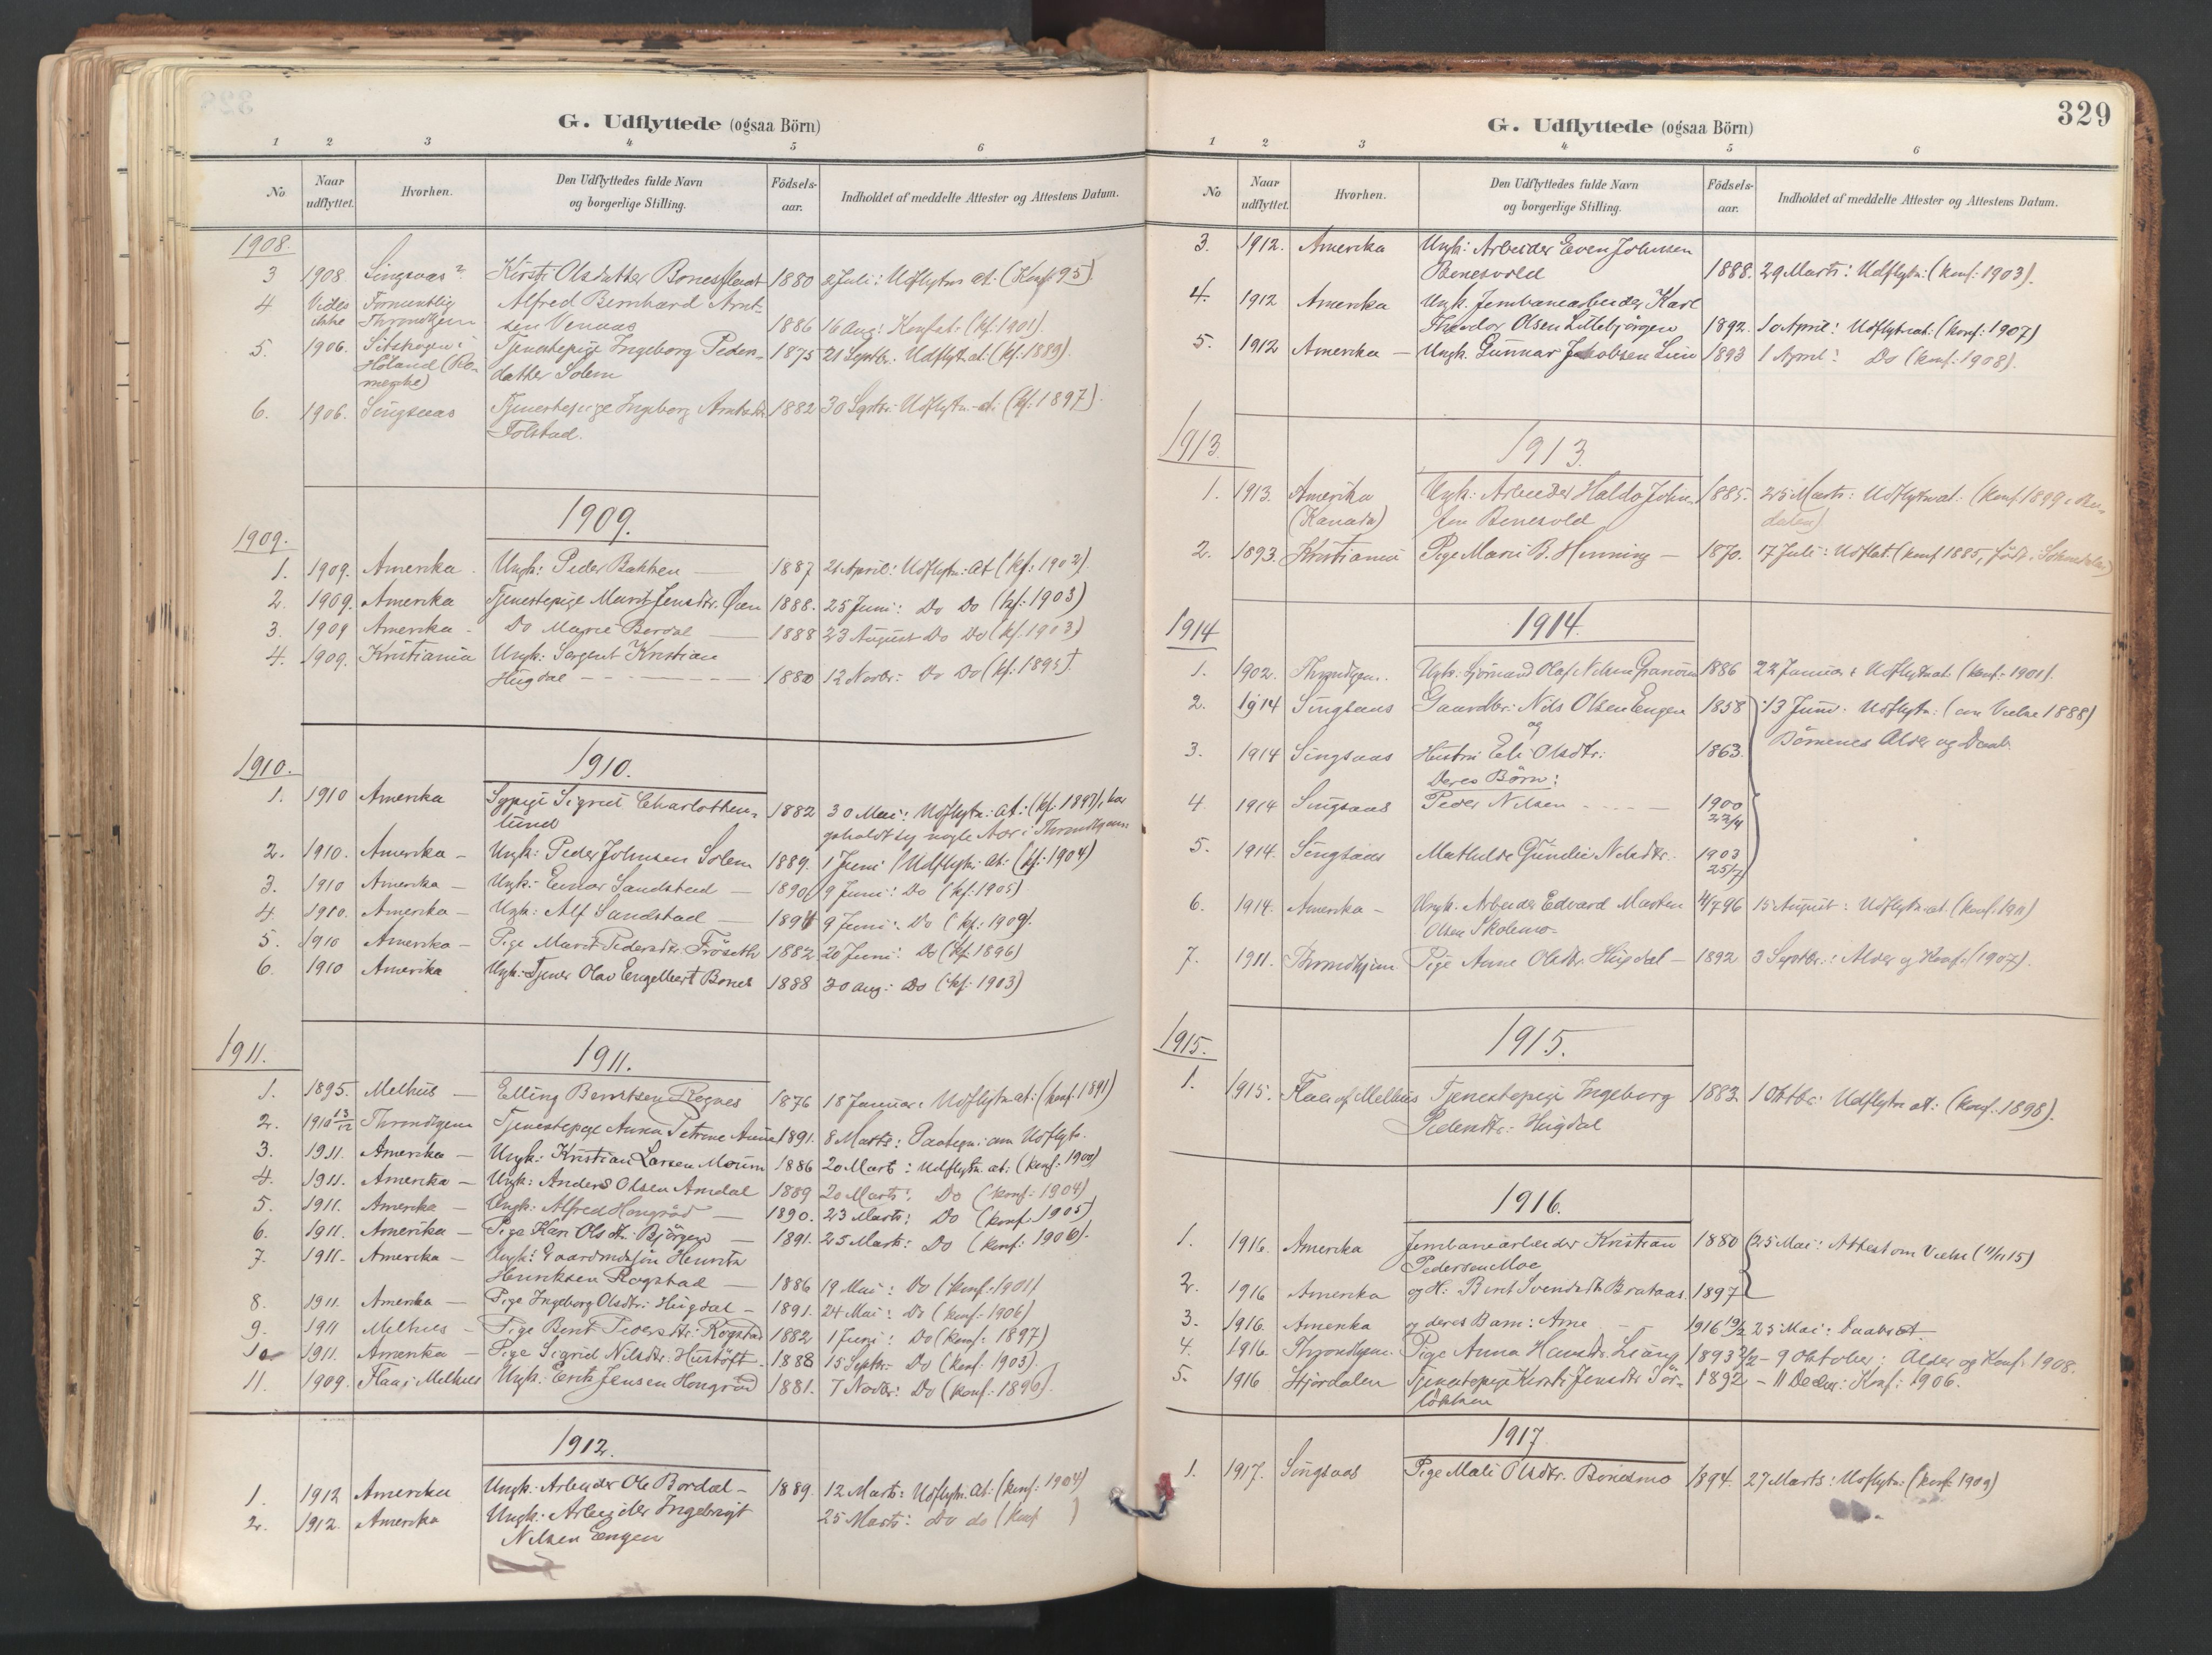 G. Udflyttede (ogsaa Börn)
1 2 3 4 5 6
No
Naar udflyttet.
Hvorhen.
Den Udflyttedes fulde Navn og borgerlige Stilling.
Födsels-aar.
Indholdet af meddelte Attester og Attestens Datum.
1908.
3 1908 Singsaas Kirsti Olsdatter Bonesfleat 1880 2 Juli: Udflytn at: (Konf. 95).
4 Vides Formentlig Alfred Bernhard Arnt-
ikke Throndhjem sen Vennas 1886 16 Aug: Konf at: (kf. 1901).
5. 1906. i Tjenestepige Ingeborg Peders- 1875 21 Septbr. Udflyt. at: (kf. 1889).
Höland (Ro- datter Solem
merike)
6. 1906. Singsaas Tjenestepige Ingeborg Arntsdr. 1882 30 Septbr. Udflytn. at: (kf. 1897).
Folstad.
1909.
1909.
1. 1909. Amerika Ungk: Peder Bakken — 1887 21 April: Udflytn: at (kf: 1902).
2. 1909. Amerika Tjenestepige Marit Jensdtr. Öien 1888. 25 Juni: Do Do (kf: 1903)
3. 1909 Amerika - Do Marie Bordal — 1888 23 August Do Do (kf. 1903)
4. 1909. Kristiania Ungk: Sergent Kristian
Hugdal - - - 1880 12 Novbr: Do Do (kf: 1895).
1910.
1910.
1. 1910 Amerika Sypige Sigrid Charlotten- 1882 30 Mai: Udflytn: at: (kf. 1897), har
lund opholdt sig nogle Aar i Throndhjem
2. 1910. Amerika - Ungk: Peder Johnsen Solem 1889. 1 Juni (Udflytn. at: (kf: 1904)
3. 1910 Amerika - Ungk: Einar Sandstad — 1890 9 Juni: Do (kf. 1905)
4. 1910. Amerika - Ungk: Alf Sandstad — 1894 9 Juni: Do (kf: 1909).
5. 1910 Amerika - Pige Marit Pedersdtr. Fröseth 1882 20 Juni: Do (kf. 1896)
6. 1910 Amerika Ungk: Tjener Olav Engelbert Bones 1888 30 Aug: Do (kf: 1903)
1911.
1911.
1. 1895. Melhus — Elling Berntsen Rognes 1876 18 Januar: Udflytn at: (konf. 1891)
2. 1910 13/12 Throndhjem Tjenestepige Anna Petrine 1891. 8 Marts: Paategn: om Udflytn.
3. 1911. Amerika — Ungk: Kristian Larsen Moum 1886 20 Marts: Udflytn. at: (konf: 1900)
4. 1911. Amerika — Ungk: Anders Olsen Amdal 1889 20 Marts: Do (konf: 1904)
5. 1911. Amerika — Ungk: Alfred Hongröd — 1890. 23 Marts: Do (konf. 1905)
6. 1911. Amerika — Pige Kari Olsdtr. Björgen — 1891. 25 Marts: Do (konf: 1906).
7. 1911. Amerika — Ungk: Gaardmdsön Henrik
Henriksen Rogstad — 1886 19 Mai: Do (konf: 1901)
8. 1911. Amerika — Pige Ingeborg Olsdtr: Hugdal - 1891. 24 Mai: Do (konf: 1906)
9. 1911 Melhus - Pige Berit Pedersdtr: Rogstad 1882 1 Juni: Do (konf: 1897)
10 1911. Amerika — Pige Sigrid Nilsdtr: Hustöft - 1888 15 Septbr. Do (konf. 1903).
11. 1909. Flaa i Melhus Ungk: Erik Jensen Hongröd 1881. 7 Novbr: Do (konf: 1896).
1912.
1. 1912 Amerika Ungk: Arbeider Ole Bordal - 1889. 12 Marts: Udflytn. at: (konf: 1904)
2. 1912. Amerika Ungk: Arbeider Ingebrigt 25 Marts: Do do (konf )
Nilsen Engen
329
G. Udflyttede (ogsaa Börn)
1 2 3 4 5 6
No
Naar udflyttet.
Hvorhen.
Den Udflyttedes fulde Navn og borgerlige Stilling.
Födsels-aar.
Indholdet af meddelte Attester og Attestens Datum.
3. 1912. Amerika Ungk: Arbeider Even Johnsen
Benesvold 1888. 29 Marts: Udflytn: (konf: 1903).
4. 1912 Amerika Ungk. Jernbanearbeider Karl
Theodor Olsen Lillebjörgen 1892. 10 April: Udflytn at: (konf: 1907)
5. 1912 Amerika — Ungk. Gunnar Jakobsen Lien 1893 1 April: Do (konf: 1908).
1913
1913.
1. 1913. Amerika Ungk: Arbeider Haldo John- 1885. 25 Marts: Udflytn at: (konf 1899 i Bu-
(Kanada) sen Benesvold dalen)
2. 1893. Kristiania Pige Marie B. Henning — 1870. 17 Juli: Udfl at. (konf 1885, født i Soknedalen)
1914
1914.
1. 1902. Throndhjem. Ungk: Sjömand Olaf Nilsen Granmo 1886 22 Januar: Udflytn at. (konf. 1901).
2. 1914 Singsaas Gaardbr: Nils Olsen Engen 1858 13 Juni: Udflytn: (om Vielse 1888)
og
3. 1914 Singsaas Hustru Eli Olsdtr: 1863. Börnenes Alder og Daab.
Deres Börn:
4. 1914 Singsaas Peder Nilsen - - - 1900
22/4
5. 1914. Singsaas Mathilde Gunelie Nilsdtr. 1903
25/7
6. 1914. Amerika - Ungk. Arbeider Edvard Marten 4/7 96 15 August: Udflytn. at. (konf. 1911)
Olsen Skolemo -
7. 1911. Throndhjem Pige Anne Olsdtr. Hugdal — 1892 3 Septbr.: Alder og Konf. (1907).
1915.
1915.
1. 1915. Flaa af Melhus Tjenestepige Ingeborg 1883 1 Oktbr: Udflytn at: (konf: 1898).
Pedersdtr: Hugdal
1916.
1. 1916. Amerika Jernbanearbeider Kristian 1880 25 Mai: Attest om Vielse (11/11 15)
Pedersen Moe
2. 1916 Amerika og H: Berit Svendsdtr Brataas 1897
3. 1916. Amerika og deres Barn: Arne - - 1916 19/2 25 Mai: Daabs at.
4. 1916. Throndhjem. Pige Anna Hansdtr. Liäng 1893 2/2 - 9 Oktober: Alder og Konf. 1908.
5. 1916 Hjördalen Tjenestepige Kirsti Jensdtr Sör- 1892 - 11 Decbr: Konf: 1906.
lökken
1917
1. 1917. Singsaas Pige Mali Olsdtr. Bonesmo 1894. 27 Marts: Udflytn: (konf: 1909)